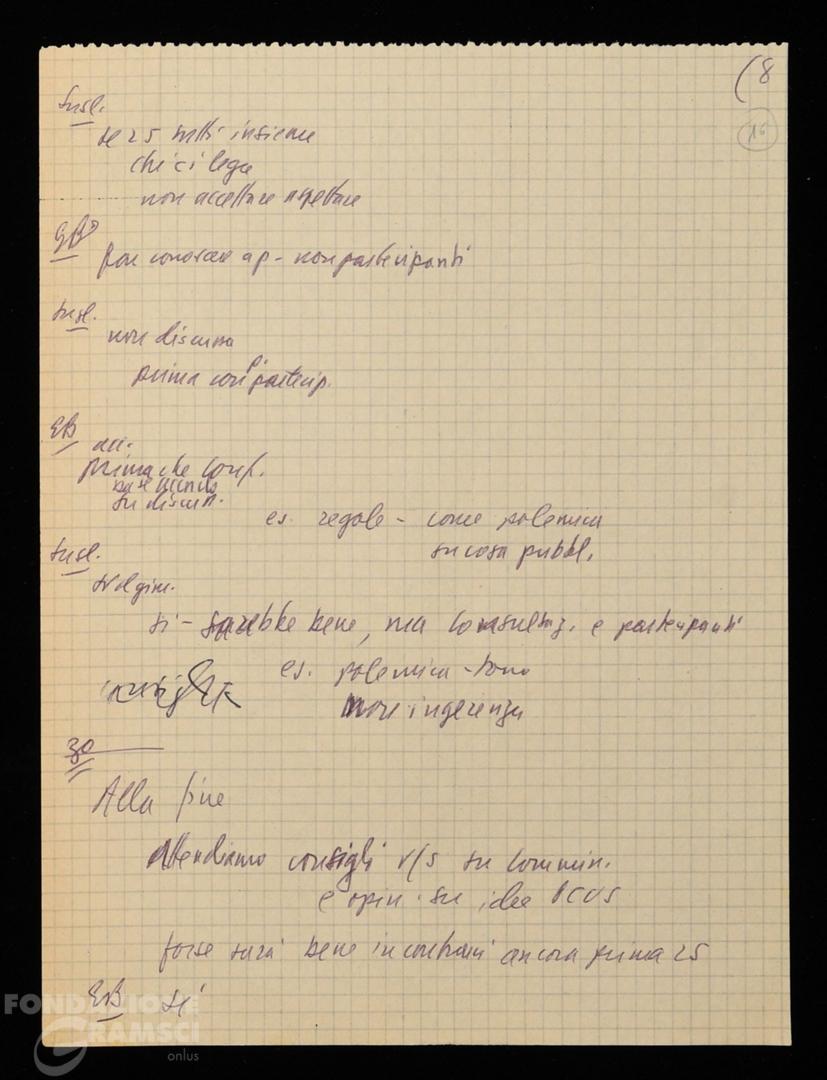 (8
16
Susl.
se 25 tutti insieme
che ci lega
non accettare rispettare
EB
far conoscere ap - non partecipanti
Susl.
non discussa
prima con partecip.
EB
prima che conf.
su discuss.
es. regole - come polemica
su cosa pubbl.
Susl.
svolgim.
si - sarebbe bene, ma consultaz. e partecipanti
es. polemica - tono
non ingerenza
3º
Alla fine
Attendiamo consigli v/s su commun.
e opin. su idee PCUS
forse sarà bene incontrarsi ancora prima 25
EB sì
FONDAZIONE
GRAMSCI
onlus